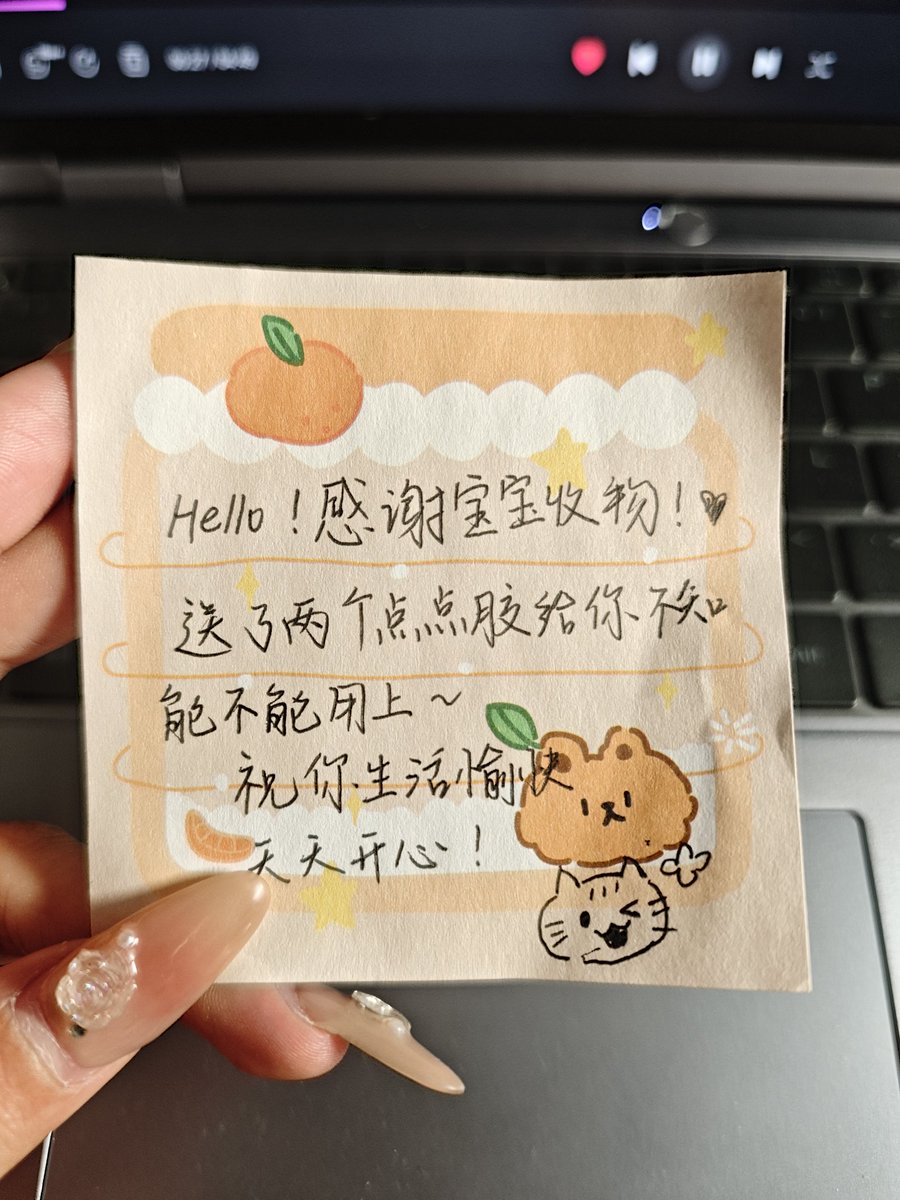 Hello！感谢宝宝收物！♥
送了两个点点胶给你不知
能不能用上～
祝你生活愉快
天天开心！